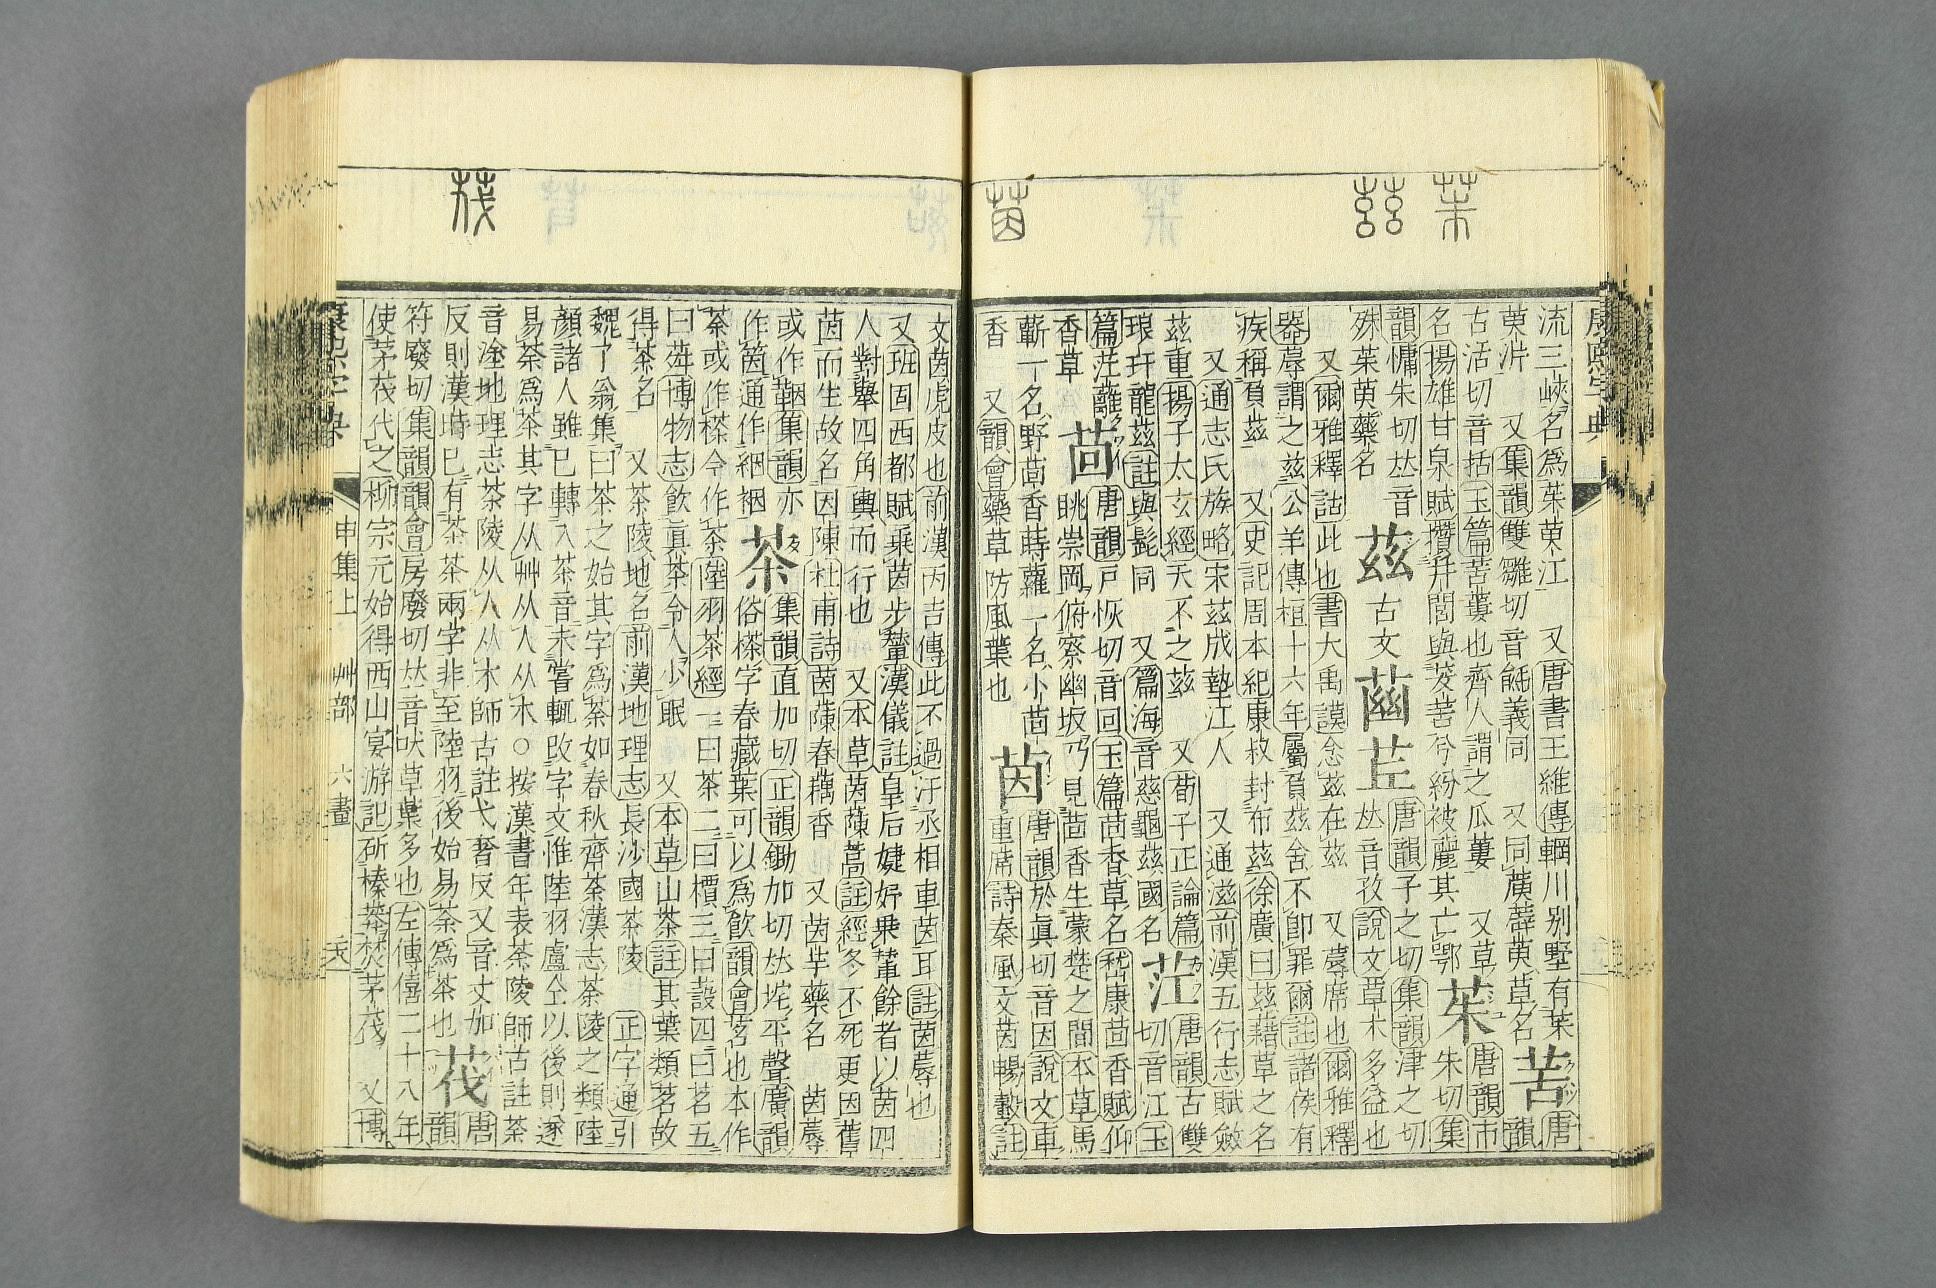 茱 茲 茵
康熙字典
流三峽名爲茱萸江　又唐書王維傳輞川别墅有茱
萸沜　又集韻雙雛切音毹義同　又同藬薜萸草名　苦　唐韻
古活切音括玉篇苦蔞也齊人謂之瓜蔞　又草　茱　唐韻市
名揚雄甘泉賦攢幷閭與茇苦兮紛被麗其亡鄂　朱切集
韻慵朱切𠀤音殊茱萸藥名　茲　古文𦱳芷　唐韻子之切集韻津之切
𠀤音孜說文草木多益也
又爾雅釋詁此也書大禹謨念茲在茲　又蓐席也爾雅釋
器蓐謂之茲公羊傳桓十六年屬負茲舍不卽罪爾註諸侯有
疾稱負茲　又史記周本紀康叔封布茲徐廣曰茲藉草之名
又通志氏族略宋茲成墊江人　又通滋前漢五行志賦斂
茲重揚子太玄經天不之茲　又荀子正論篇
琅玕龍茲註與髭同　又篇海音慈龜茲國名　茳　唐韻古雙切音江玉
篇茳蘺香草　茴　唐韻戸恢切音回玉篇茴香草名嵇康茴香賦仰
眺崇岡俯察幽坂乃見茴香生蒙楚之間本草馬
蘄一名野茴香蒔蘿一名小茴香　又韻會藥草防風葉也　茵　唐韻於眞切音因說文車
重席詩秦風文茵暢轂註
茷
文茵虎皮也前漢丙吉傳此不過汙丞相車茵耳註茵蓐也
又班固西都賦乘茵步輦漢儀註皇后婕妤乗輦餘者以茵四
人對舉四角輿而行也　又本草茵蔯蒿註經冬不死更因舊
茵而生故名因陳杜甫詩茵蔯春藕香　又茵芋藥名　茵蓐
或作鞇集韻亦作筃通作絪裀　茶　集韻直加切正韻鋤加切𠀤垞平聲廣韻
俗㯆字春藏葉可以爲飮韻會茗也本作
荼或作㯆今作茶陸羽茶經一曰茶二曰檟三曰蔎四曰茗五
曰荈博物志飮眞茶令人少眠　又本草山茶註其葉類茗故
得茶名　又茶陵地名前漢地理志長沙國茶陵　正字通引
魏了翁集曰茶之始其字爲荼如春秋齊荼漢志荼陵之類陸
顏諸人雖已轉入茶音未嘗輒改字文惟陸羽盧仝以後則遂
易荼爲茶其字从艸从人从木○按漢書年表茶陵師古註荼
音塗地理志茶陵从人从木師古註弋奢反又音丈加
反則漢時已有荼茶兩字非至陸羽後始易荼爲茶也　茷　唐韻
符廢切集韻韻會房廢切𠀤音吠草葉多也左傳僖二十八年
使茅茷代之柳宗元始得西山宴游記斫榛莽焚茅茷　又博
康熙字典　申集上　艸部　六畫